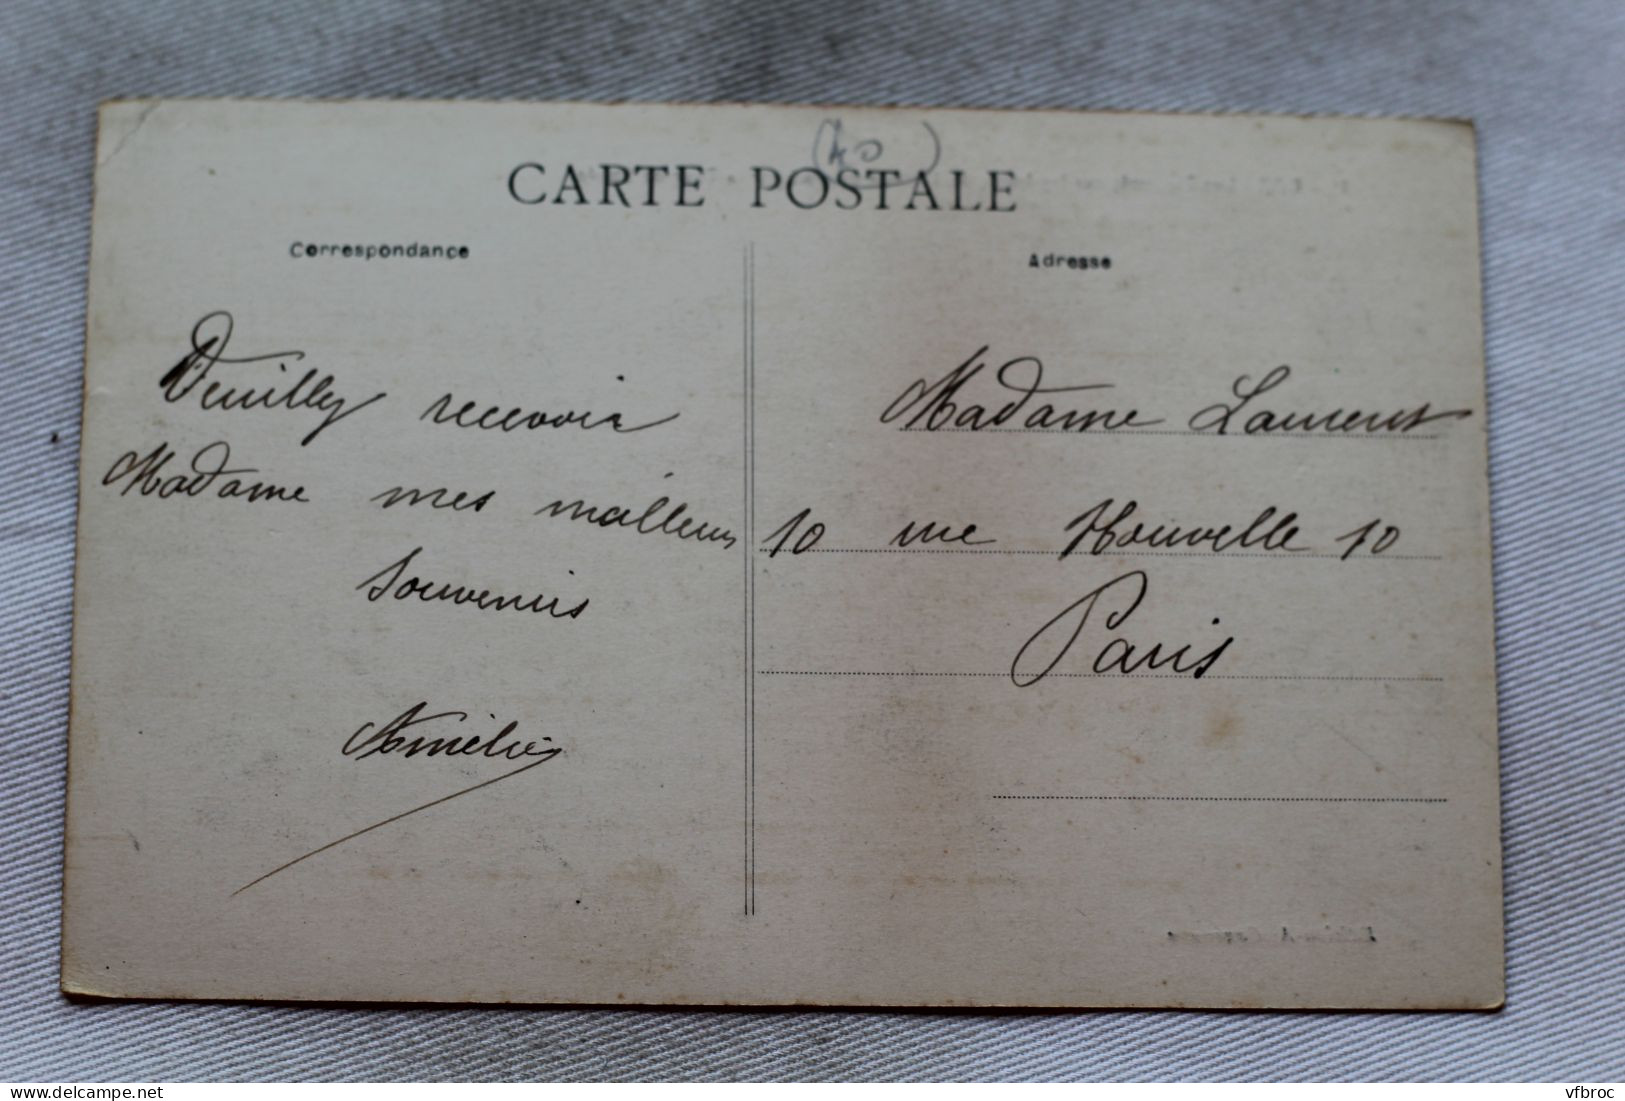 (40)
CARTE POSTALE
Correspondance
Veuilly recevoir
Madame mes meilleurs
Souvenirs
Amélie
Adresse
Madame Laurent
10 rue Nouvelle 10
Paris
www.delcampe.net
vfbroc